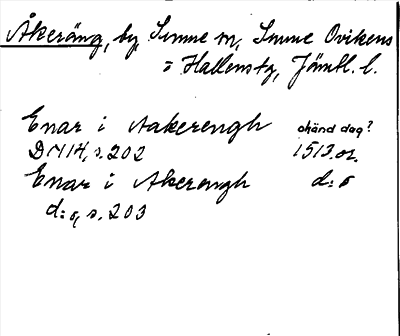 Åkeräng, by, Sunne sn, Sunne Ovikens
o Hallens tg, Jämtl. l.
Enar i Aakerengh okänd dag?
DN 14, s. 202 1513. or.
Enar i Akerengh d:o
d:o, s. 203